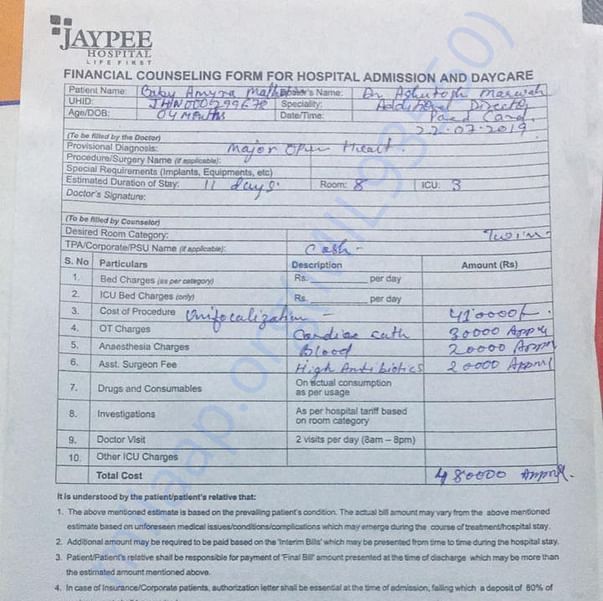 JAYPEE
HOSPITAL
LIFE FIRST
FINANCIAL COUNSELING FORM FOR HOSPITAL ADMISSION AND DAYCARE
Patient Name: Baby Amyra 's Name: Dr Ashutosh Marwah
UHID: JHN000299678 Speciality: Additional Director
Age/DOB: 04 Months Date/Time: Paed Card.
22-07-2019
(To be filled by the Doctor)
Provisional Diagnosis: Major Open Heart.
Procedure/Surgery Name (if applicable):
Special Requirements (Implants, Equipments, etc)
Estimated Duration of Stay: 11 days. Room: 8 ICU: 3
Doctor's Signature:
(To be filled by Counselor)
Desired Room Category: Twin
TPA/Corporate/PSU Name (if applicable): Cash -
S. No Particulars Description Amount (Rs)
1. Bed Charges (as per category) Rs. per day
2. ICU Bed Charges (only) Rs. per day
3. Cost of Procedure Unifocalization - 410000/-
4. OT Charges Cardiac cath 30000
5. Anaesthesia Charges Blood 20000
6. Asst. Surgeon Fee High Antibiotics 20000
7. Drugs and Consumables On actual consumption
as per usage
8. Investigations As per hospital tariff based
on room category
9. Doctor Visit 2 visits per day (8am – 8pm)
10. Other ICU Charges
Total Cost 480000
It is understood by the patient/patient's relative that:
1. The above mentioned estimate is based on the prevailing patient's condition. The actual bill amount may vary from the above mentioned
estimate based on unforeseen medical issues/conditions/complications which may emerge during the course of treatment/hospital stay.
2. Additional amount may be required to be paid based on the 'Interim Bills' which may be presented from time to time during the hospital stay.
3. Patient/Patient's relative shall be responsible for payment of 'Final Bill' amount presented at the time of discharge which may be more than
the estimated amount mentioned above.
4. In case of Insurance/Corporate patients, authorization letter shall be essential at the time of admission, failing which a deposit of 80% of